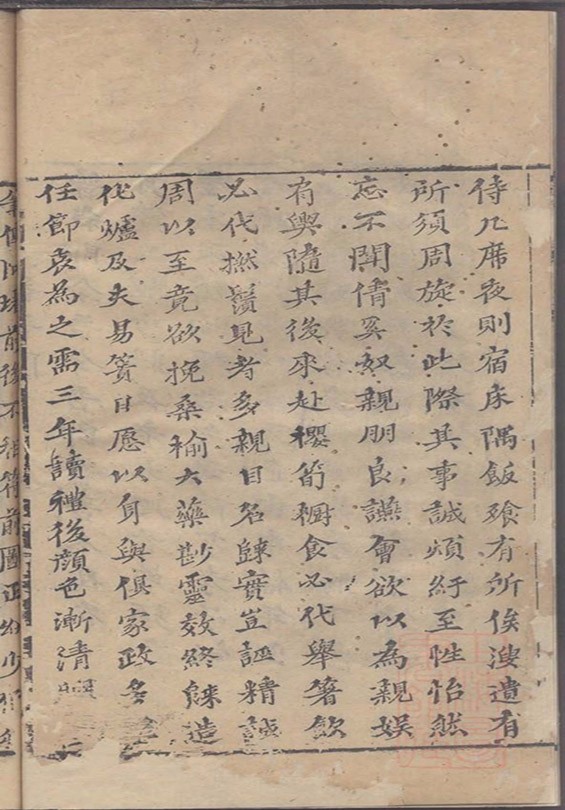 侍几席夜則宿床隅飯飱有所俟溲遺有
所須周旋於此際其事誠煩紆至性怡然
忘不關情奚奴親朋良讌會欲以為親娛
有輿隨其後來赴櫻筍橱食必代舉箸飲
必代撚鬚見者多親目名踈實豈誣精誠
周以至竟欲挽桑榆大藥尠靈效終踈造
化爐及夫易簀日愿以身與俱家政
任節哀為之需三年讀禮後顏色漸清
前後不
前圖正